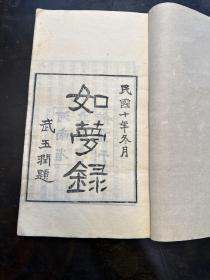 民國十年久月
如夢錄
武玉潤題